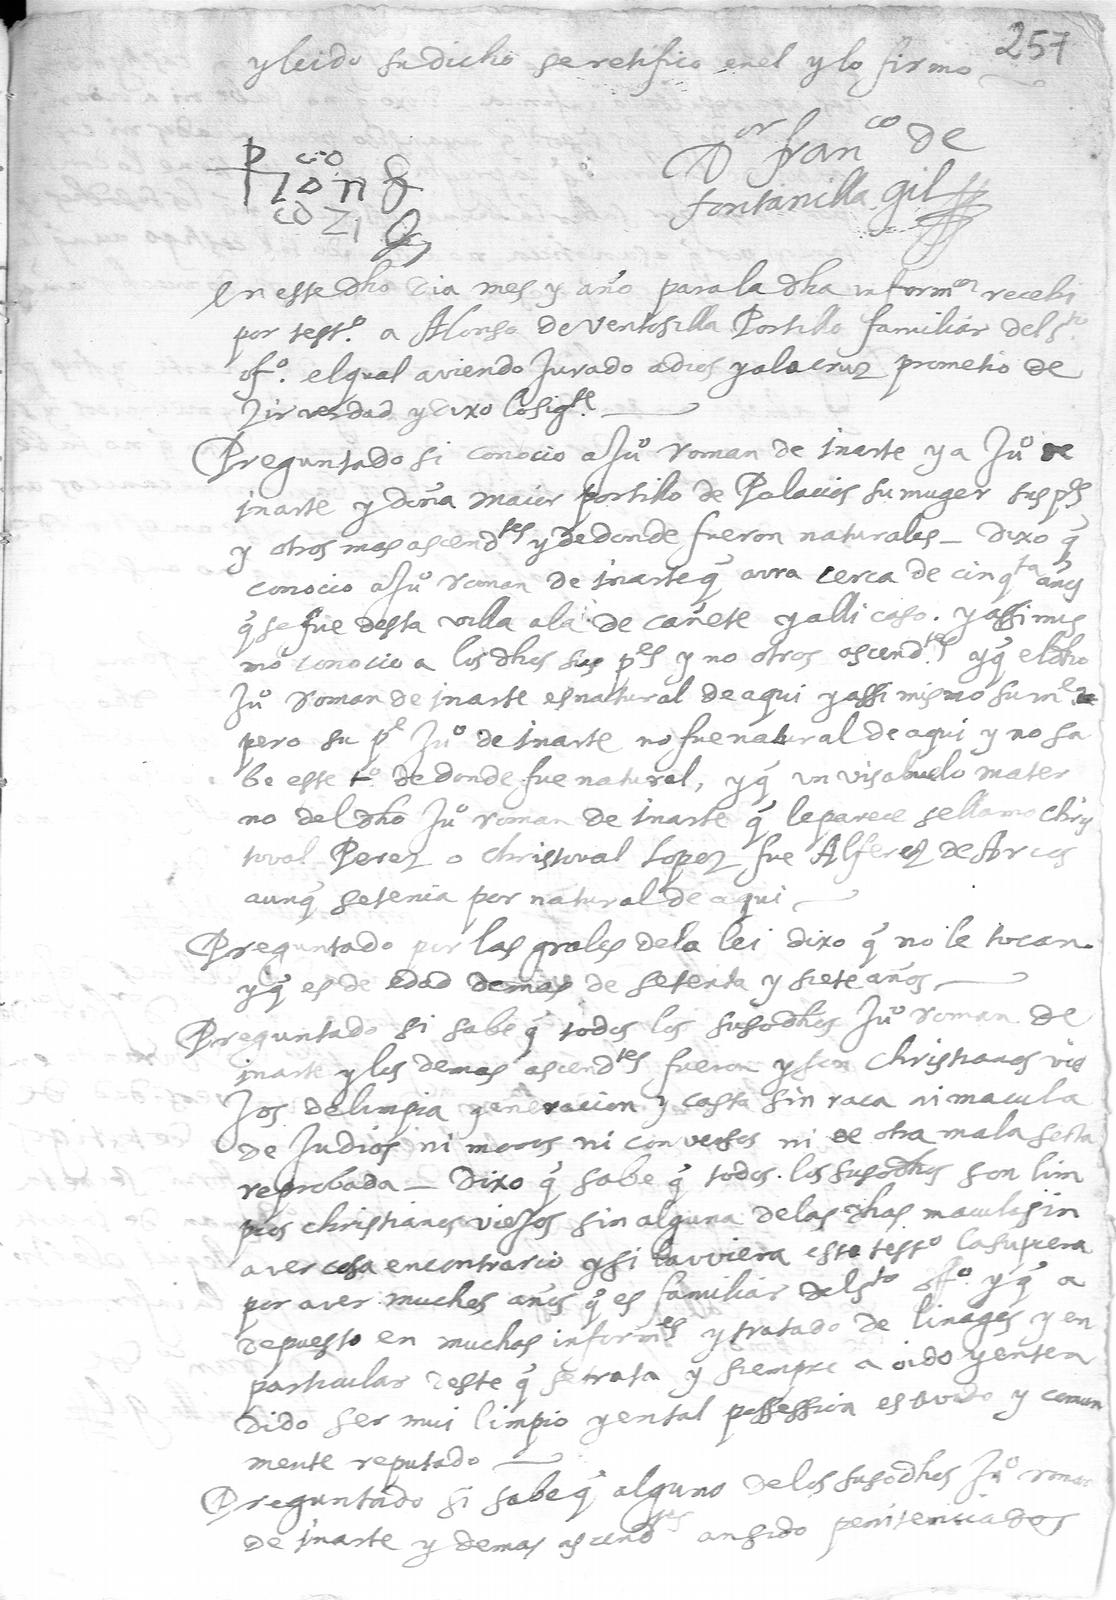 257
y leido su dicho se retifico en el y lo firmo
Dor franco de
fontanilla gil
En este dho dia mes y año para la dha informon recebi
por testo. a Alonso de ventosilla Portillo familiar del sto.
ofo. el qual aviendo Jurado a dios y a la cruz prometio de
zir verdad y dixo lo sigte.
Preguntado si conocio a Juo roman de inarte y a Juo de
inarte y doña maior portillo de Palacios su muger sus pes
y otros mas ascendtes y de donde fueron naturales _ Dixo q̃
conocio a Juo roman de inarte q̃ avra cerca de cinqta años
q̃ se fue desta villa a la de cañete y alli caso. y assi mis
mo conocio a los dhos sus pes y no otros ascendtes y q̃ el dho
Juo roman de inarte es natural de aqui y assi mismo su me
pero su pe Juo de inarte no fue natural de aqui y no sa
be este to. de donde fue natural, y q̃ un visabuelo mater
no del dho Juo roman de inarte q̃ le parece se llamo chris
toval Perez o christoval Lopez fue Alferez de Arcos
aunq̃ se tenia por natural de aqui
Preguntado por las grales de la lei dixo q̃ no le tocan.
y q̃ es de edad demas de setenta y siete años
Preguntado si sabe q̃ todos los susodhos Juo roman de
inarte y los demas ascendtes fueron y son christianos vie
Jos de limpia generacion y casta sin raca ni macula
de Judios ni moros ni conversos ni de otra mala secta
reprobada _ Dixo q̃ sabe q̃ todos los susodhos son lim
pios christianos vieJos sin alguna de las dhas maculas sin
aver cosa en contrario y si la uviera este testo la supiera
por aver muchos años q̃ es familiar del sto ofo. y q̃ a
depuesto en muchas informes y tratado de linages y en
particular deste q̃ se trata y siempre a oido y enten
dido ser mui limpio y en tal possession estavado y comun
mente reputado
Preguntado si sabe q̃ alguno de los susodhos Juo roman
de inarte y demas ascendtes an sido penitenciados